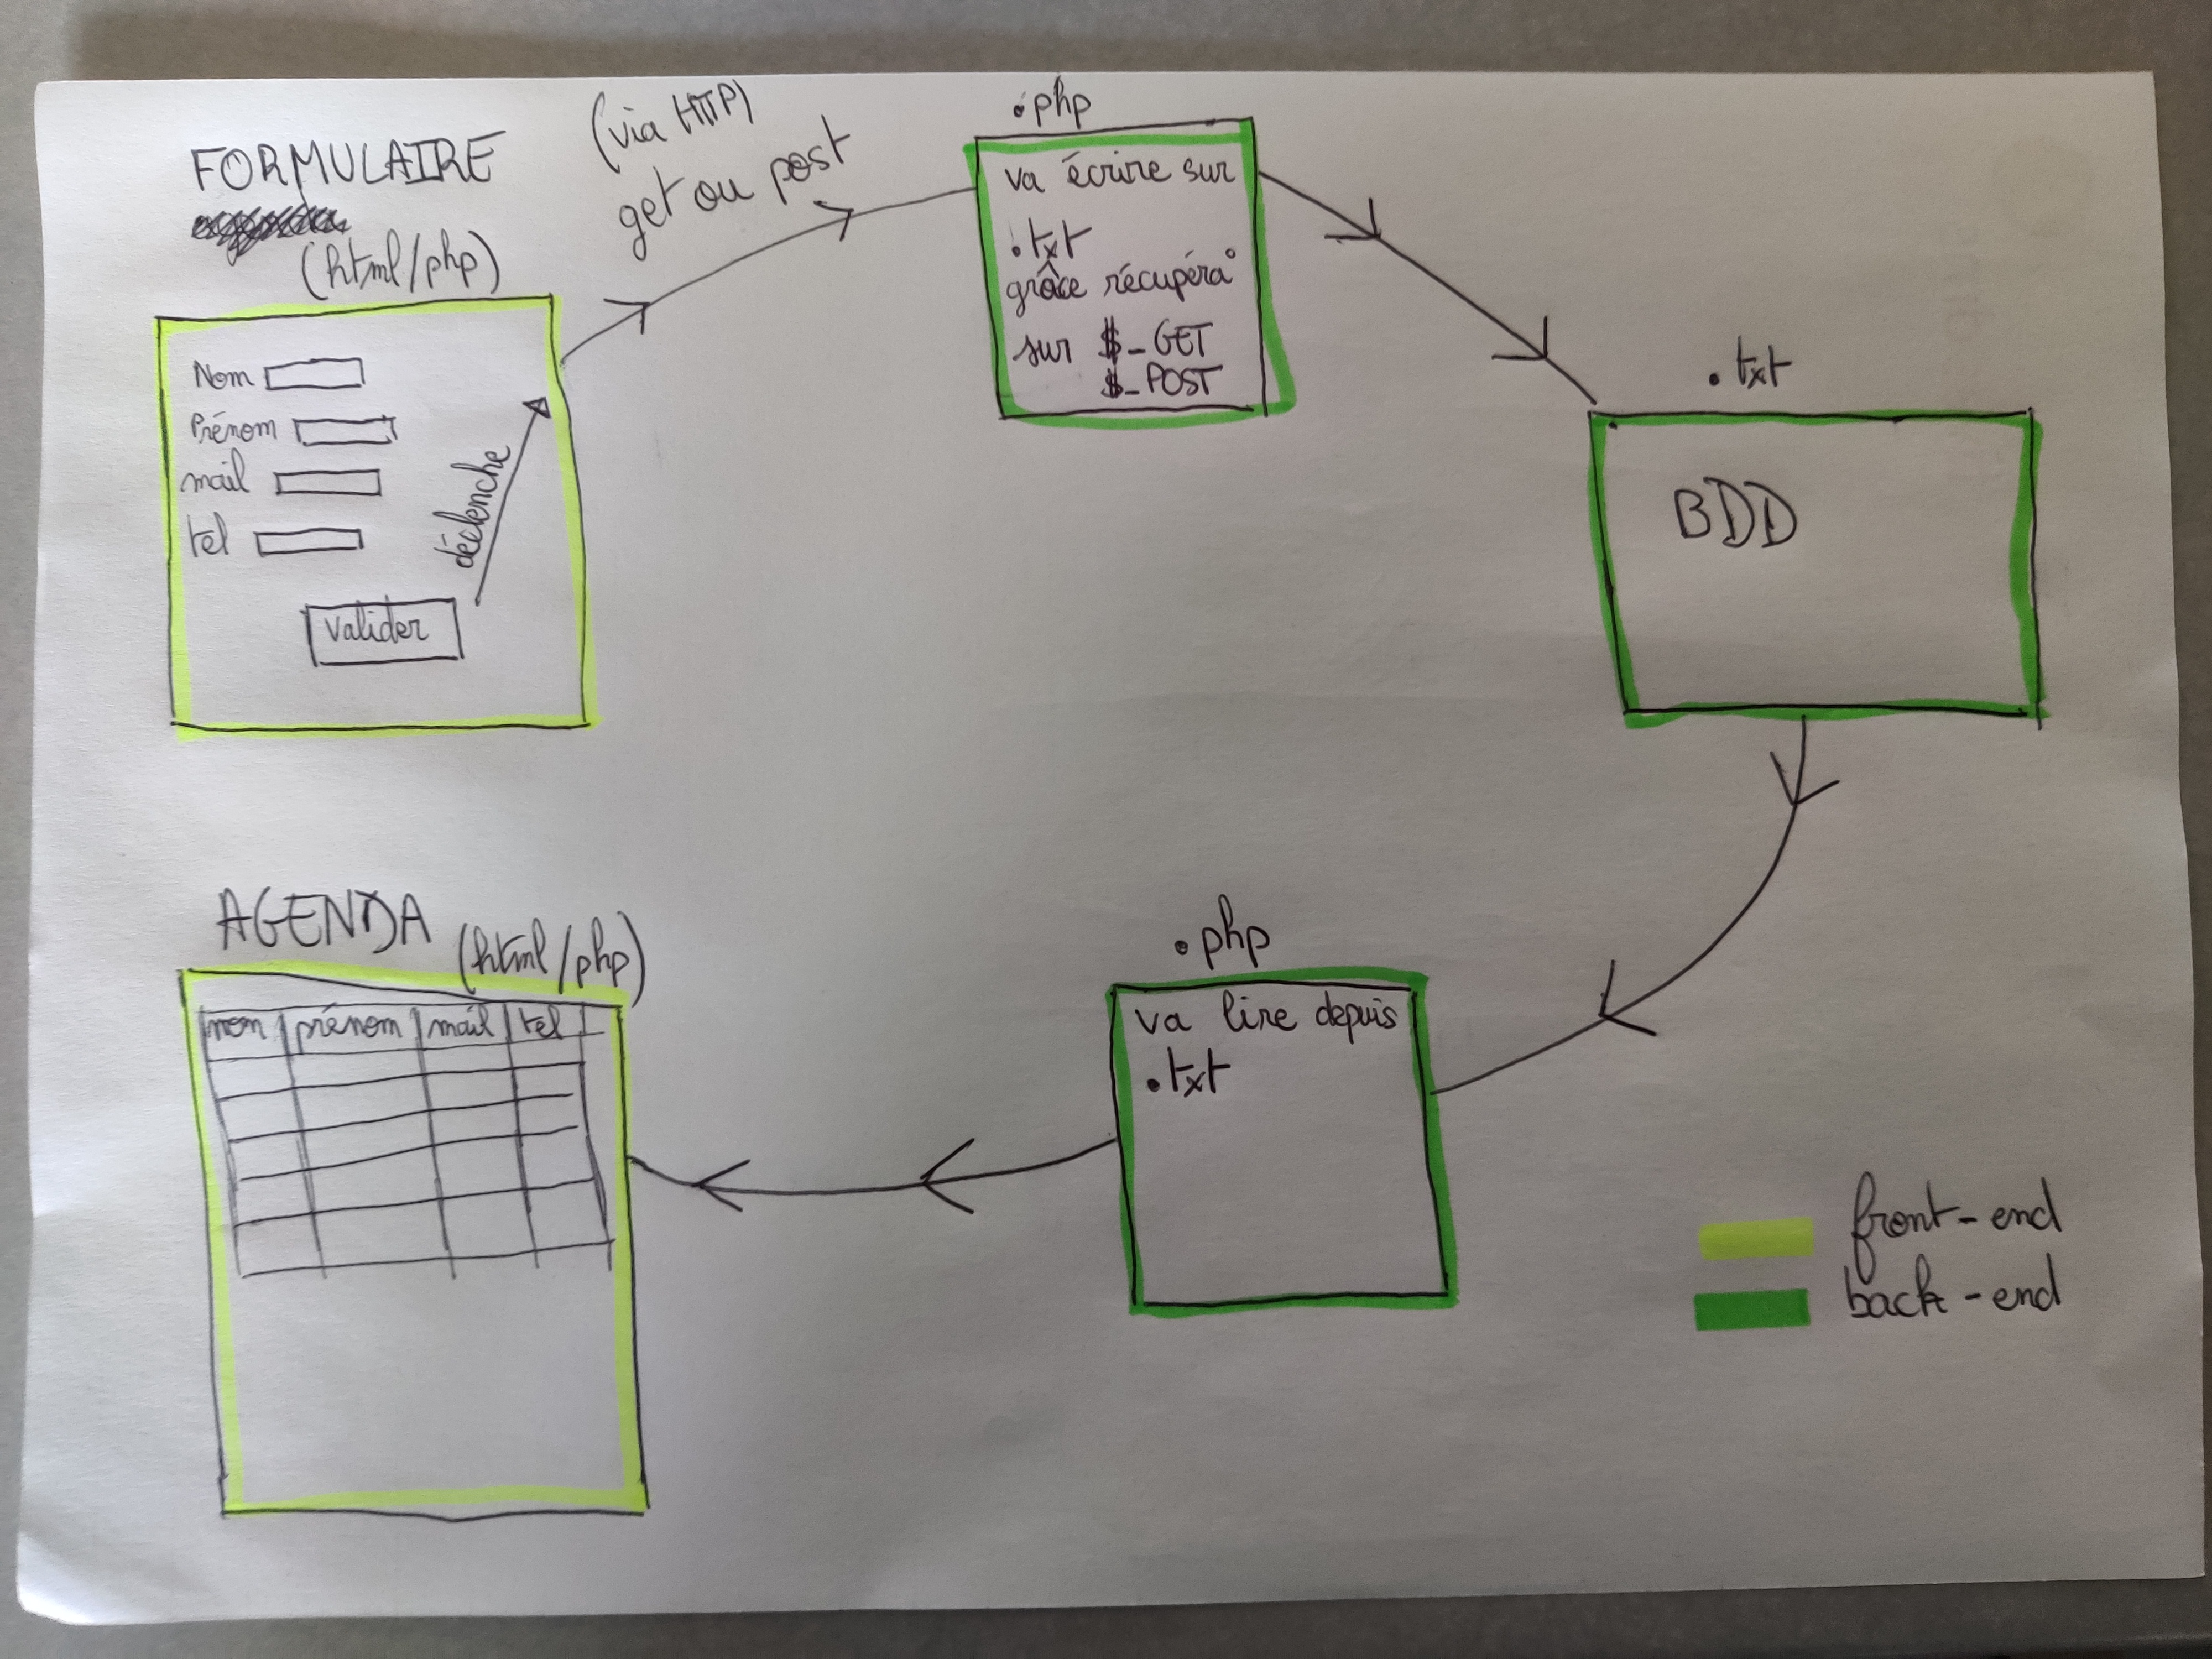 FORMULAIRE
(html/php)
Nom
Prénom
mail
tel
déclenche
Valider
(via HTTP)
get ou post
.php
va écrire sur
.txt
grâce récupéra°
sur $_GET
$_POST
.txt
BDD
.php
va lire depuis
.txt
AGENDA
(html/php)
nom prénom mail tel
front-end
back-end